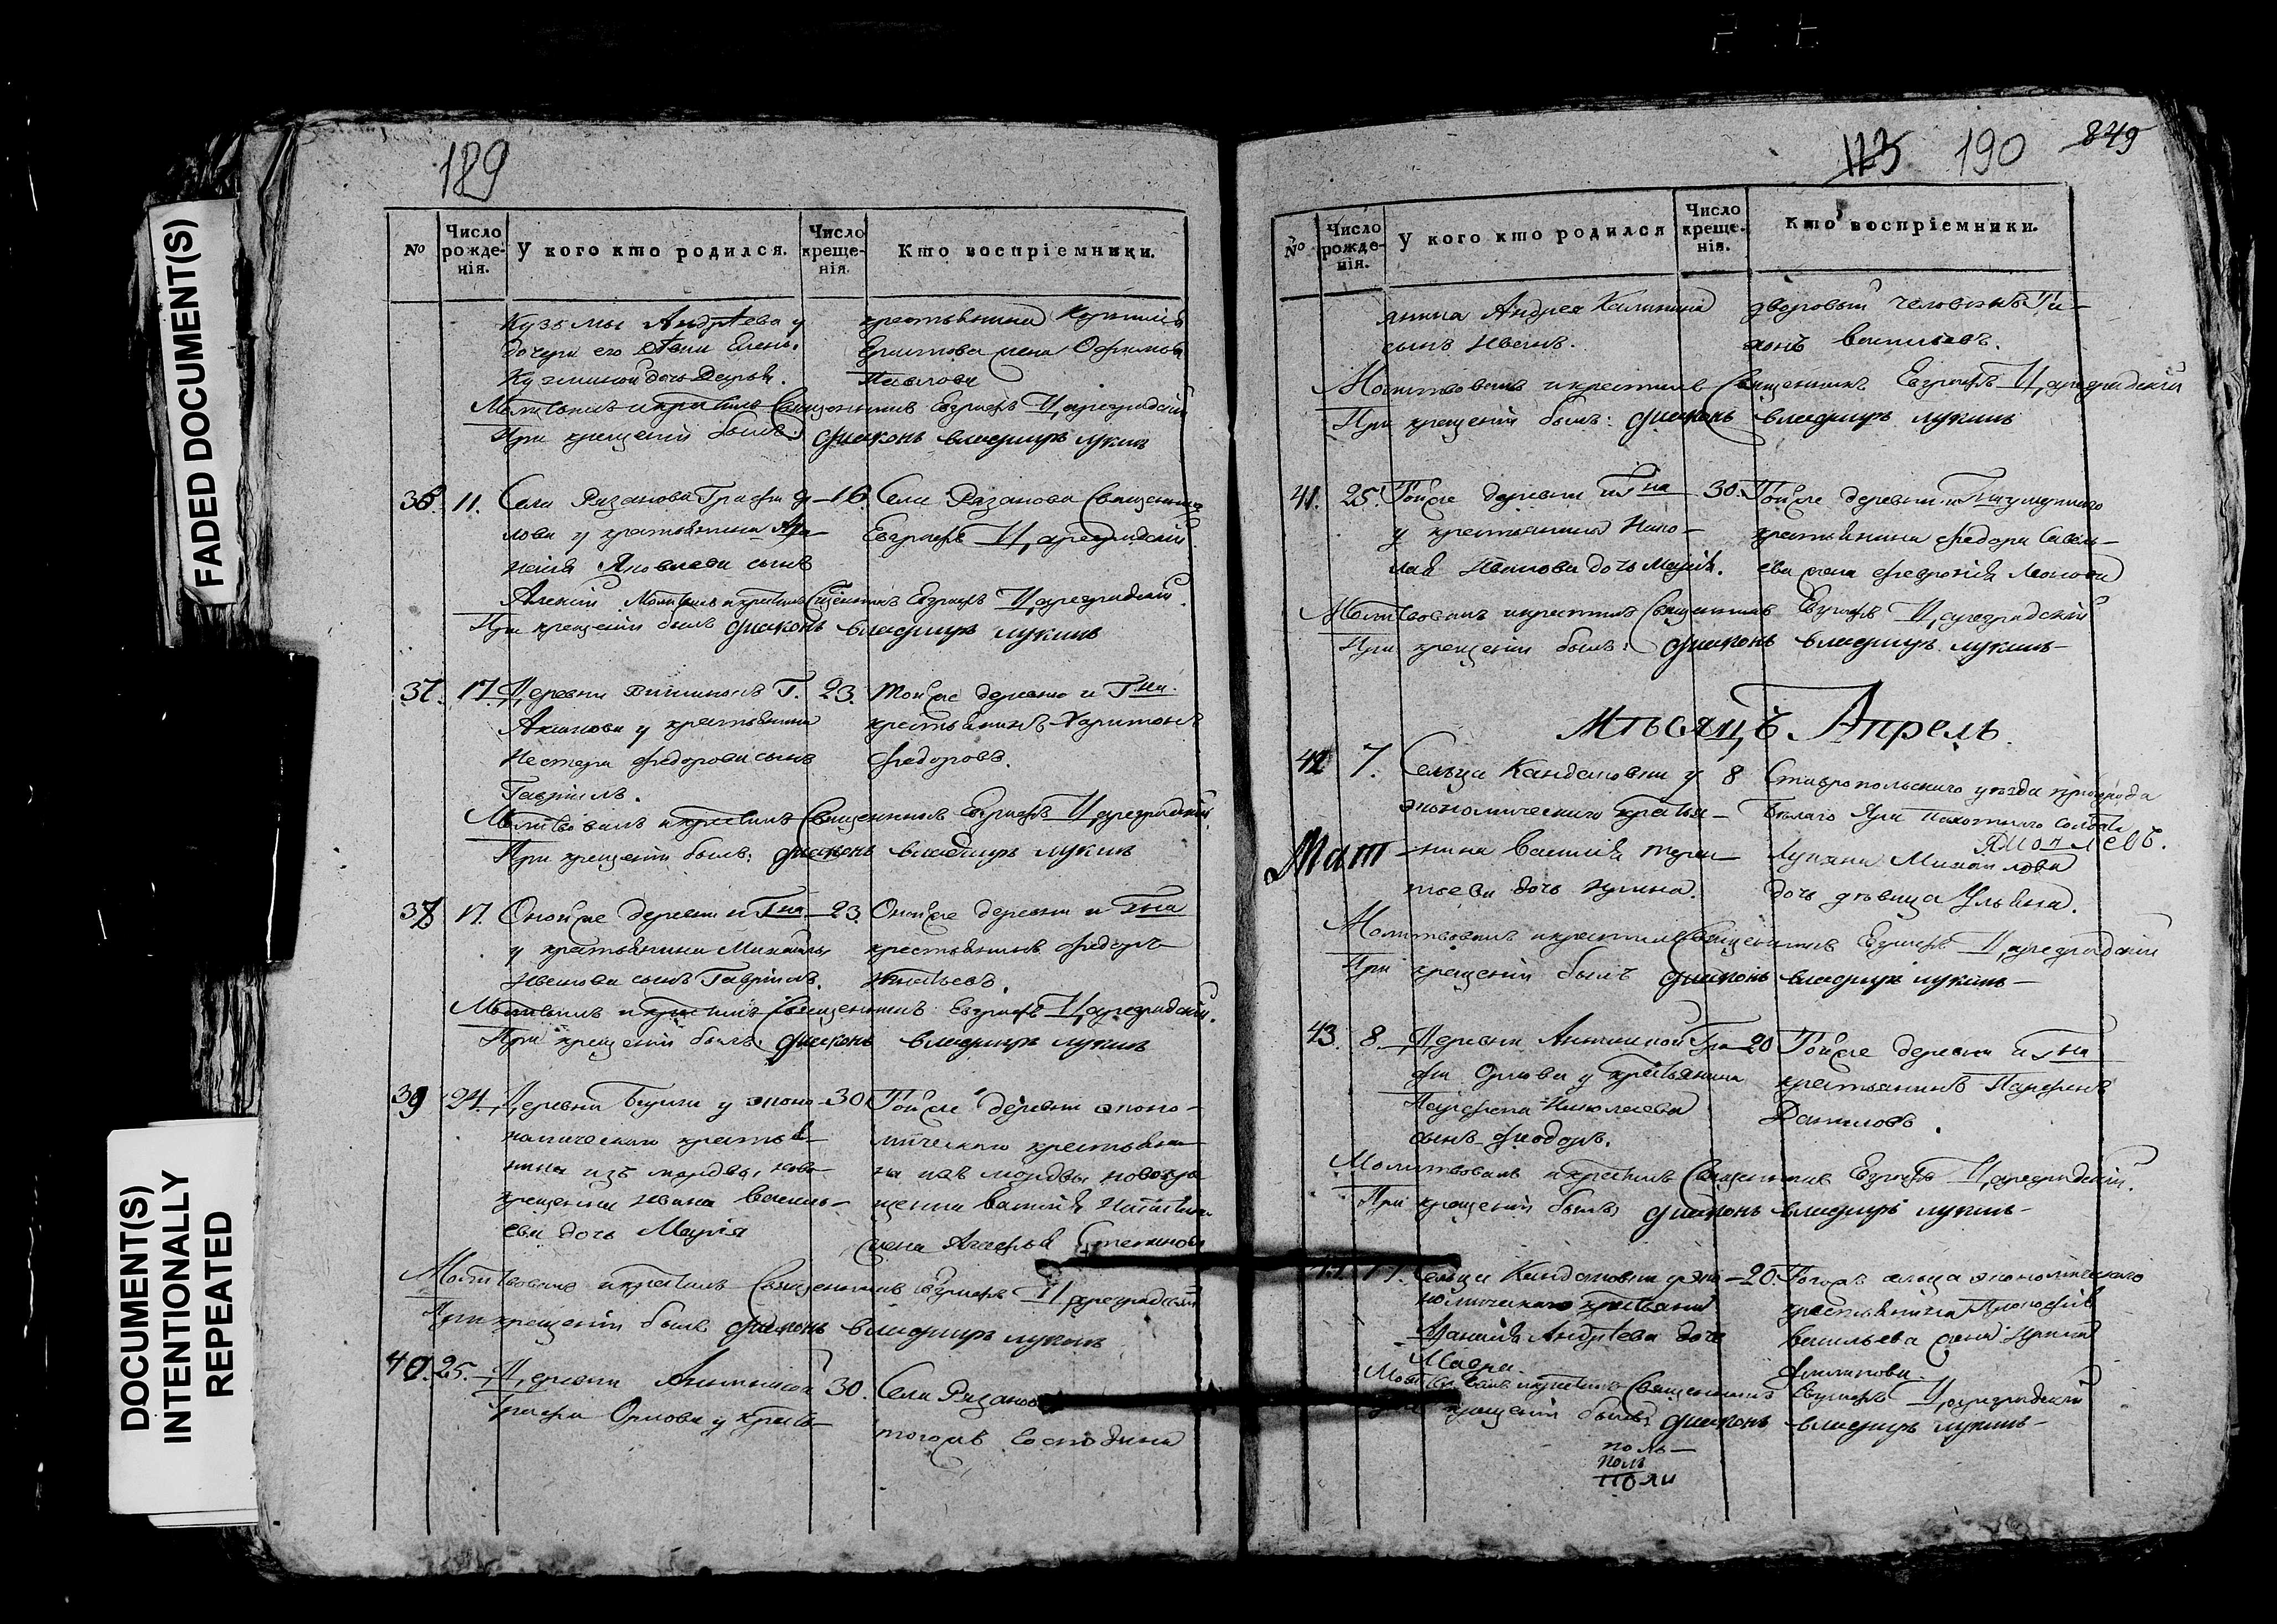 FADED DOCUMENT(S)
DOCUMENT(S)
INTENTIONALLY
REPEATED
189
№ Число рожде-нія. У кого кто родился. Число креще-нія. Кто воспріемники.
Кузьмы Андрѣева у
дочери его
Кузминой дочь Дарья.
крестьянина
жена
Павлова
Молитвовалъ и крестилъ Священникъ Евграфъ Цареградскій
При крещеніи былъ: діаконъ владимиръ лукинъ
36. 11. Села Рязанова Графа Ор-
лова у крестьянина
Яковлева сынъ
Алексій
16. Села Рязанова Священникъ
Евграфъ Цареградскій
Молитвовалъ и крестилъ Священникъ Евграфъ Цареградскій.
При крещеніи былъ діаконъ владимиръ лукинъ
37. 17. Деревни Г.
у крестьянина
Нестера Федорова сынъ
Гавріилъ.
23. Той же деревни и Гна.
крестьянинъ Харитонъ
Федоровъ.
Молитвовалъ и крестилъ Священникъ Евграфъ Цареградскій.
При крещеніи былъ: діаконъ владимиръ лукинъ
38 17. Оной же деревни и Гна
у крестьянина Михайлы
Иванова сынъ Гавріилъ.
23. Оной же деревни и Гна
крестьянинъ Федоръ
Игнатьевъ.
Молитвовалъ и крестилъ Священникъ Евграфъ Цареградскій.
При крещеніи былъ: діаконъ владимиръ лукинъ
39 24. Деревни у эконо-
мическаго крестья-
нина изъ мордвы, ново-
крещенна Ивана Василь-
ева дочь Марія
30. Той же деревни эконо-
мическаго крестьяни-
на изъ мордвы новокре-
щенна Василья
жена Агафья Степанова
Молитвовалъ и крестилъ Священникъ Евграфъ Цареградскій
При крещеніи былъ діаконъ владимиръ лукинъ
40. 25. Деревни
Графа Орлова у кресть-
30. Села Рязанова
тогожъ Господина
113 190 849
№ Число рожде-нія. У кого кто родился Число креще-нія. Кто воспріемники.
янина Андрея Калинина
сынъ Иванъ.
дворовый человѣкъ Ти-
хонъ Васильевъ.
Молитвовалъ и крестилъ Священникъ Евграфъ Цареградскій
При крещеніи былъ: діаконъ владимиръ лукинъ
41. 25. Той же деревни и Гна
у крестьянина Нико-
лая Иванова дочь Марія.
30. Той же деревни и
крестьянина Федора Савель-
ева жена Февронія
Молитвовалъ и крестилъ Священникъ Евграфъ Цареградскій
При крещеніи былъ: діаконъ владимиръ лукинъ
Мѣсяцъ Апрель.
42 7. Сельца Кандаковки у
экономическаго крестья-
нина Василья Терен-
тьева дочь Ирина.
8 Ставропольскаго уѣзда пригорода
Бѣлаго Яра пахотнаго солдата
Лукьяна
дочь дѣвица Ульяна.
Мат
Молитвовалъ и крестилъ Священникъ Евграфъ Цареградскій
При крещеніи былъ діаконъ владимиръ лукинъ
43. 8. Деревни Гра-
фа Орлова у крестьянина
Парфена Николаева
сынъ Феодоръ.
20 Той же деревни и Гна
крестьянинъ Парфенъ
Даниловъ.
Молитвовалъ и крестилъ Священникъ Евграфъ Цареградскій.
При крещеніи былъ діаконъ владимиръ лукинъ
Сельца Кандаковки у эко-
номическаго крестьянина
Андрѣева дочь
Мавра
20. Тогожъ сельца экономическаго
крестьянина Прокофія
Васильева жена Ирина
Филипова.
Молитвовалъ и крестилъ Священникъ Евграфъ Цареградскій
При крещеніи былъ: діаконъ владимиръ лукинъ
поль